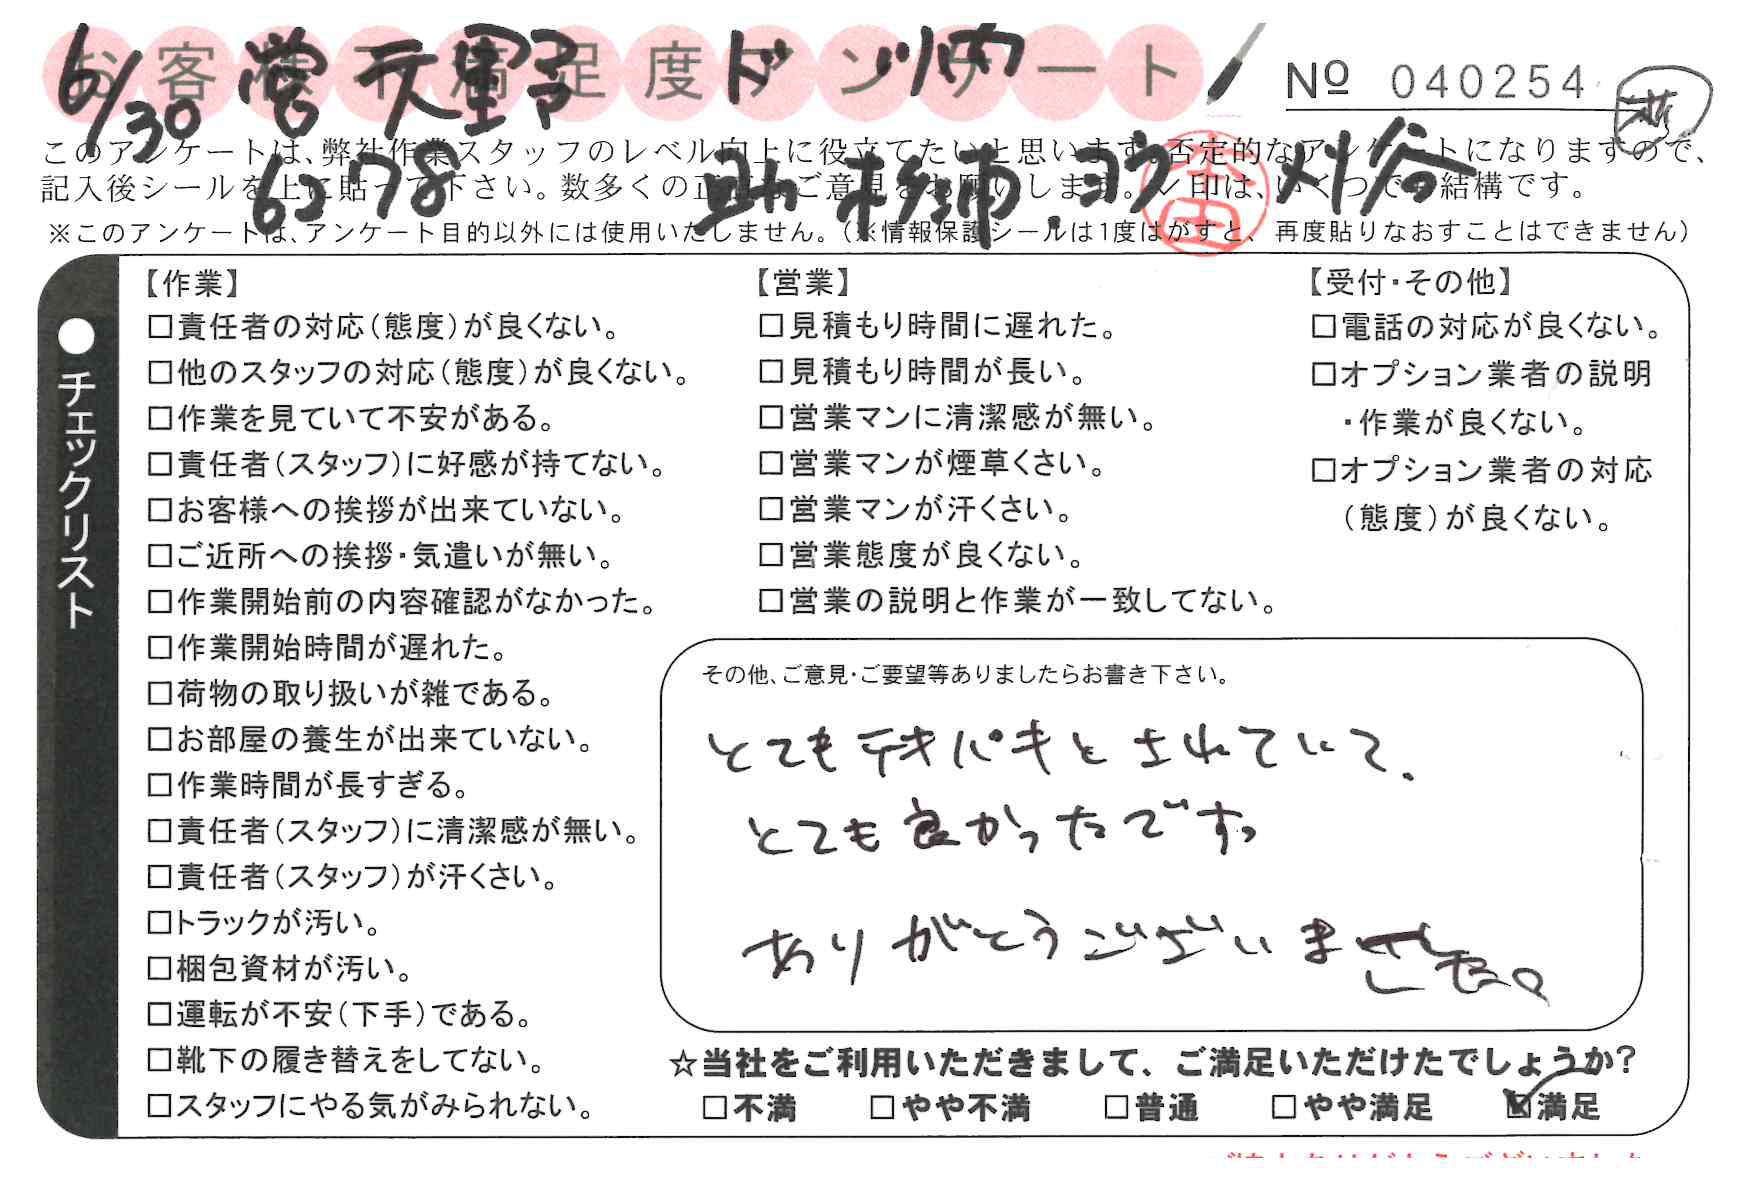 お客様不満足度アンケート
6/30 営 天野 ド
№ 040254
このアンケートは、弊社作業スタッフのレベル向上に役立てたいと思います。否定的なアンケートになりますので、
6278 助 杉浦. 刈谷
記入後シールを上に貼って下さい。数多くの正直なご意見をお願いします。レ印は、いくつでも結構です。
※このアンケートは、アンケート目的以外には使用いたしません。(※情報保護シールは1度はがすと、再度貼りなおすことはできません)
●チェックリスト
【作業】
□責任者の対応(態度)が良くない。
□他のスタッフの対応(態度)が良くない。
□作業を見ていて不安がある。
□責任者(スタッフ)に好感が持てない。
□お客様への挨拶が出来ていない。
□ご近所への挨拶・気遣いが無い。
□作業開始前の内容確認がなかった。
□作業開始時間が遅れた。
□荷物の取り扱いが雑である。
□お部屋の養生が出来ていない。
□作業時間が長すぎる。
□責任者(スタッフ)に清潔感が無い。
□責任者(スタッフ)が汗くさい。
□トラックが汚い。
□梱包資材が汚い。
□運転が不安(下手)である。
□靴下の履き替えをしてない。
□スタッフにやる気がみられない。
【営業】
□見積もり時間に遅れた。
□見積もり時間が長い。
□営業マンに清潔感が無い。
□営業マンが煙草くさい。
□営業マンが汗くさい。
□営業態度が良くない。
□営業の説明と作業が一致してない。
【受付・その他】
□電話の対応が良くない。
□オプション業者の説明
・作業が良くない。
□オプション業者の対応
(態度)が良くない。
その他、ご意見・ご要望等ありましたらお書き下さい。
とてもテキパキとされていて、
とても良かったです。
ありがとうございました。
☆当社をご利用いただきまして、ご満足いただけたでしょうか?
□不満 □やや不満 □普通 □やや満足 ☑満足